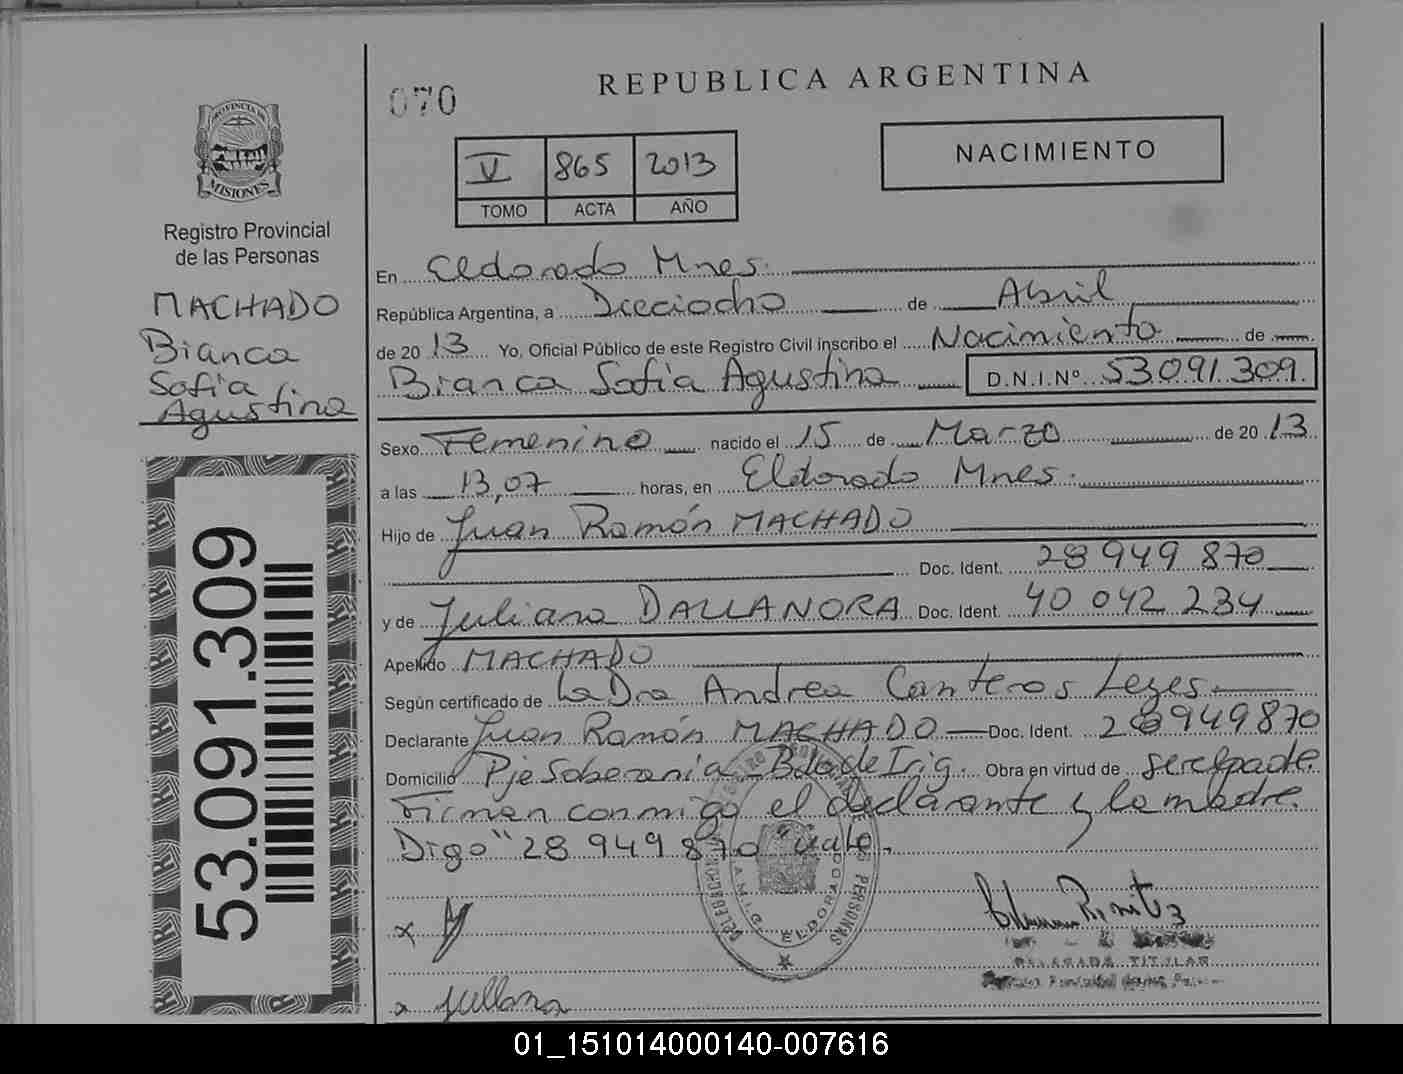 070
REPUBLICA ARGENTINA
PROVINCIA DE
MISIONES
V 865 2013
TOMO ACTA AÑO
NACIMIENTO
Registro Provincial
de las Personas
MACHADO
Bianca
Sofia
Agustina
53.091.309
En Eldorado Mnes.
República Argentina, a Dieciocho de Abril
de 20 13 Yo, Oficial Público de este Registro Civil inscribo el Nacimiento de
Bianca Sofia Agustina D.N.I.Nº 53.091.309.
Sexo Femenino nacido el 15 de Marzo de 20 13
a las 13,07 horas, en Eldorado Mnes.
Hijo de Juan Ramón MACHADO
Doc. Ident. 28 949 870
y de Juliana DALLANORA Doc. Ident. 40 042 234
Apellido MACHADO
Según certificado de La Dra Andrea Canteros Leyes
Declarante Juan Ramón MACHADO Doc. Ident. 28949870
Domicilio Pje Soberania Obra en virtud de
Firman conmigo el declarante y la madre.
Digo "28 949 870" vale.
ELDORADO
PERSONAS
x
x Juliana
DELEGADA TITULAR
01_151014000140-007616